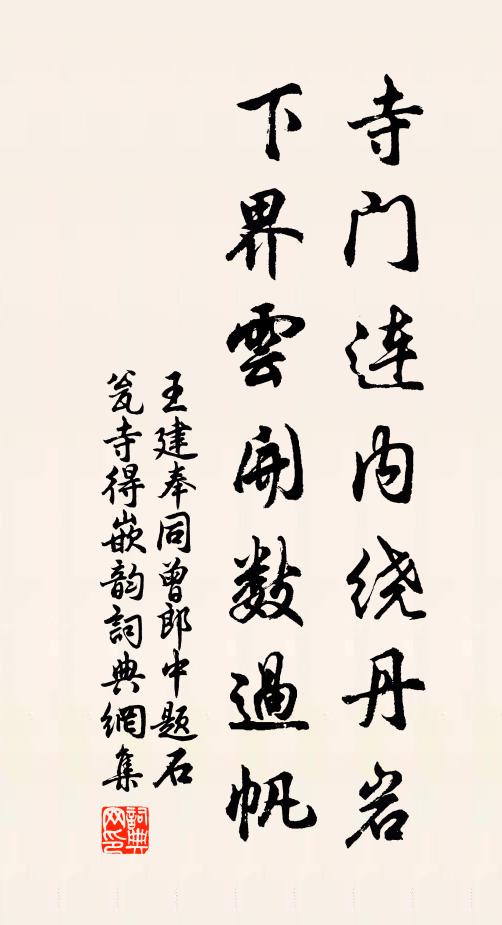 寺门连内绕丹岩
下界雲開數過帆
王建奉同曾郎中题石
瓮寺得嵌韵詞典網集